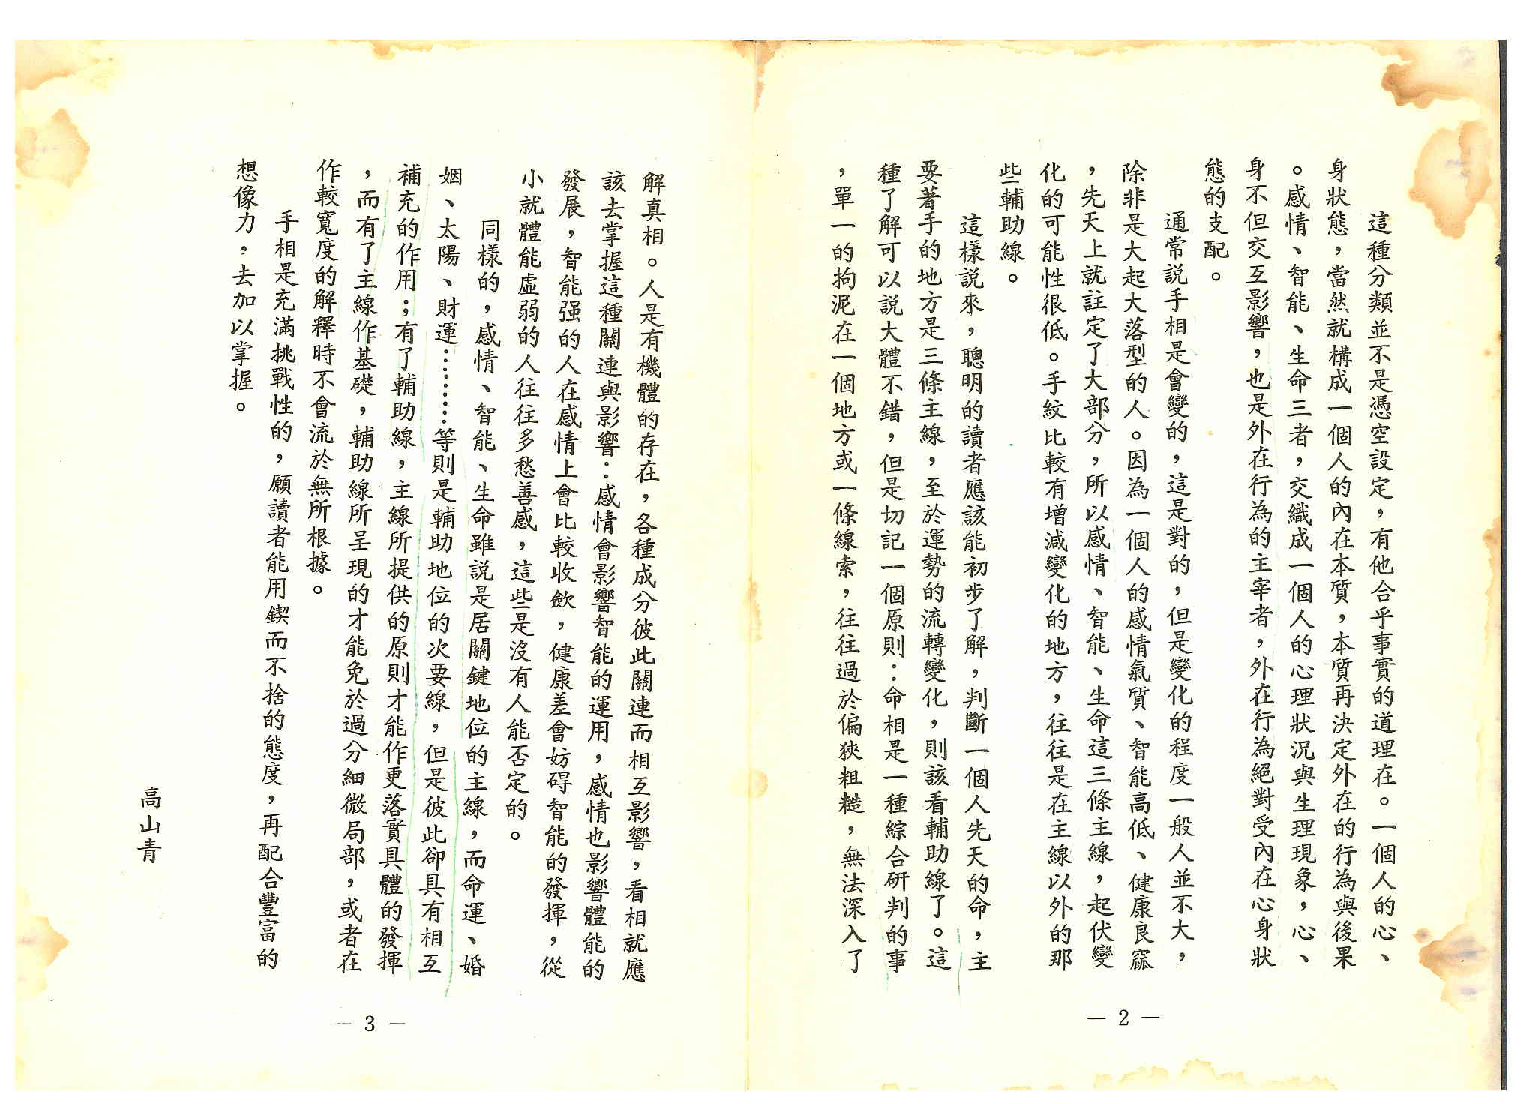 這種分類並不是憑空設定，有他合乎事實的道理在。一個人的心、
身狀態，當然就構成一個人的內在本質，本質再決定外在的行為與後果
。感情、智能、生命三者，交織成一個人的心理狀況與生理現象，心、
身不但交互影響，也是外在行為的主宰者，外在行為絕對受內在心身狀
態的支配。
通常説手相是會變的，這是對的，但是變化的程度一般人並不大，
除非是大起大落型的人。因為一個人的感情氣質、智能高低、健康良窳
，先天上就註定了大部分，所以感情、智能、生命這三條主線，起伏變
化的可能性很低。手紋比較有增減變化的地方，往往是在主線以外的那
些輔助線。
這樣説來，聰明的讀者應該能初步了解，判斷一個人先天的命，主
要著手的地方是三條主線，至於運勢的流轉變化，則該看輔助線了。這
種了解可以説大體不錯，但是切記一個原則：命相是一種綜合研判的事
，單一的拘泥在一個地方或一條線索，往往過於偏狹粗糙，無法深入了
— 2 —
解真相。人是有機體的存在，各種成分彼此關連而相互影響，看相就應
該去掌握這種關連與影響：感情會影響智能的運用，感情也影響體能的
發展，智能强的人在感情上會比較收歛，健康差會妨碍智能的發揮，從
小就體能虛弱的人往往多愁善感，這些是沒有人能否定的。
同樣的，感情、智能、生命雖説是居關鍵地位的主線，而命運、婚
姻、太陽、財運………等則是輔助地位的次要線，但是彼此卻具有相互
補充的作用；有了輔助線，主線所提供的原則才能作更落實具體的發揮
，而有了主線作基礎，輔助線所呈現的才能免於過分細微局部，或者在
作較寬度的解釋時不會流於無所根據。
手相是充滿挑戰性的，願讀者能用鍥而不捨的態度，再配合豐富的
想像力，去加以掌握。
高山青
— 3 —